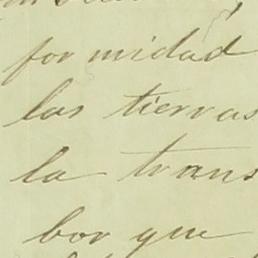 formidad
las tierras
la trans
bor que